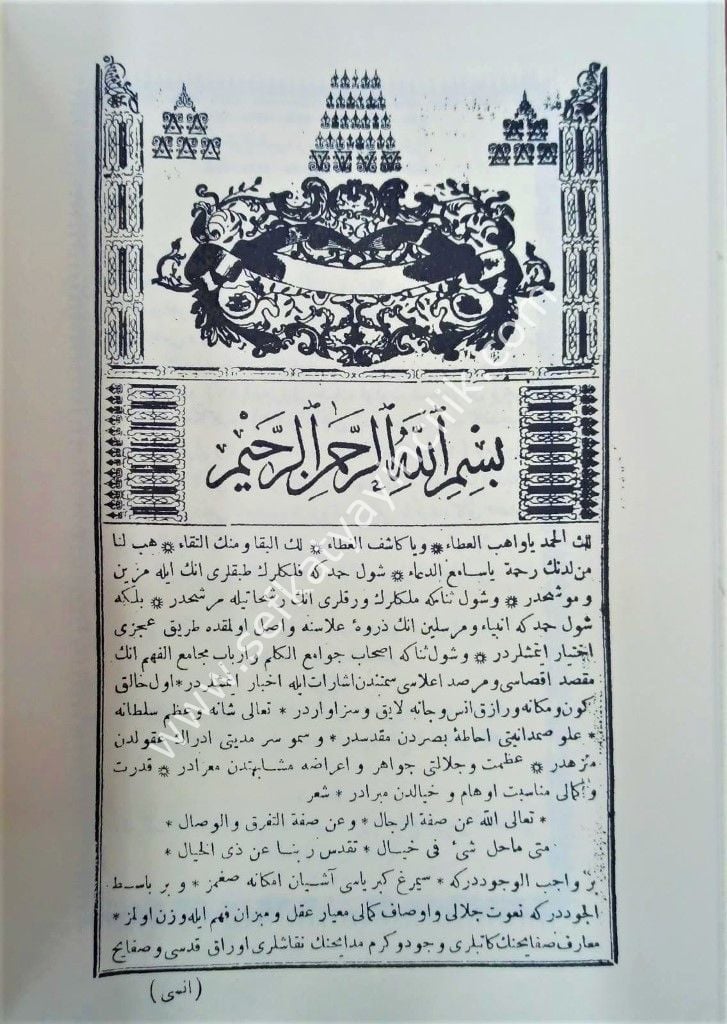 بِسْمِ ٱللَّهِ ٱلرَّحْمَنِ ٱلرَّحِيمِ
لك الحمد ياواهب العطاء * وياكاشف الغطاء * لك البقا ومنك التقاء * هب لنا
من لدنك رحمة ياسامع الدعاء * شول حمد كه فلكلرك طبقلرى انك ايله مزين
وموشحدر * وشول ثناكه ملكلرك ورقلرى انك رشحاتيله مرشحدر * بلكه
شول حمد كه انبياء ومرسلين انك ذروۀ علاسنه واصل اولمقده طريق عجزى
اختيار ايتمشلردر * وشول ثناكه اصحاب جوامع الكلم وارباب مجامع الفهم انك
مقصد اقصاسى ومرصد اعلاسى سمتندن اشارات ايله اخبار ايتمشلردر * اول خالق
كون ومكانه ورازق انس وجانه لايق وسزاواردر * تعالى شانه وعظم سلطانه
* علو صمدانيتى احاطۀ بصردن مقدسدر * وسمو سرمديتى ادراك عقولدن
منزهدر * عظمت وجلالتى جواهر واعراضه مشابهتدن معرادر * قدرت
وكمالى مناسبت اوهام وخيالدن مبرادر * شعر
* تعالى الله عن صفة الرجال * وعن صفة التفرق والوصال *
متى ماحل شئ فى خيال * تقدس ربنا عن ذى الخيال *
بر واجب الوجوددركه * سيمرغ كبرياسى آشيان امكانه صغمز * وبر باسط
الجوددركه نعوت جلالى واوصاف كمالى معيار عقل وميزان فهم ايله وزن اولمز *
معارف صفايحنك كاتبلرى وجود وكرم مدايحنك نقاشلرى اوراق قدسى وصفايح
(انسى)
www.sefkatyayincilik.com